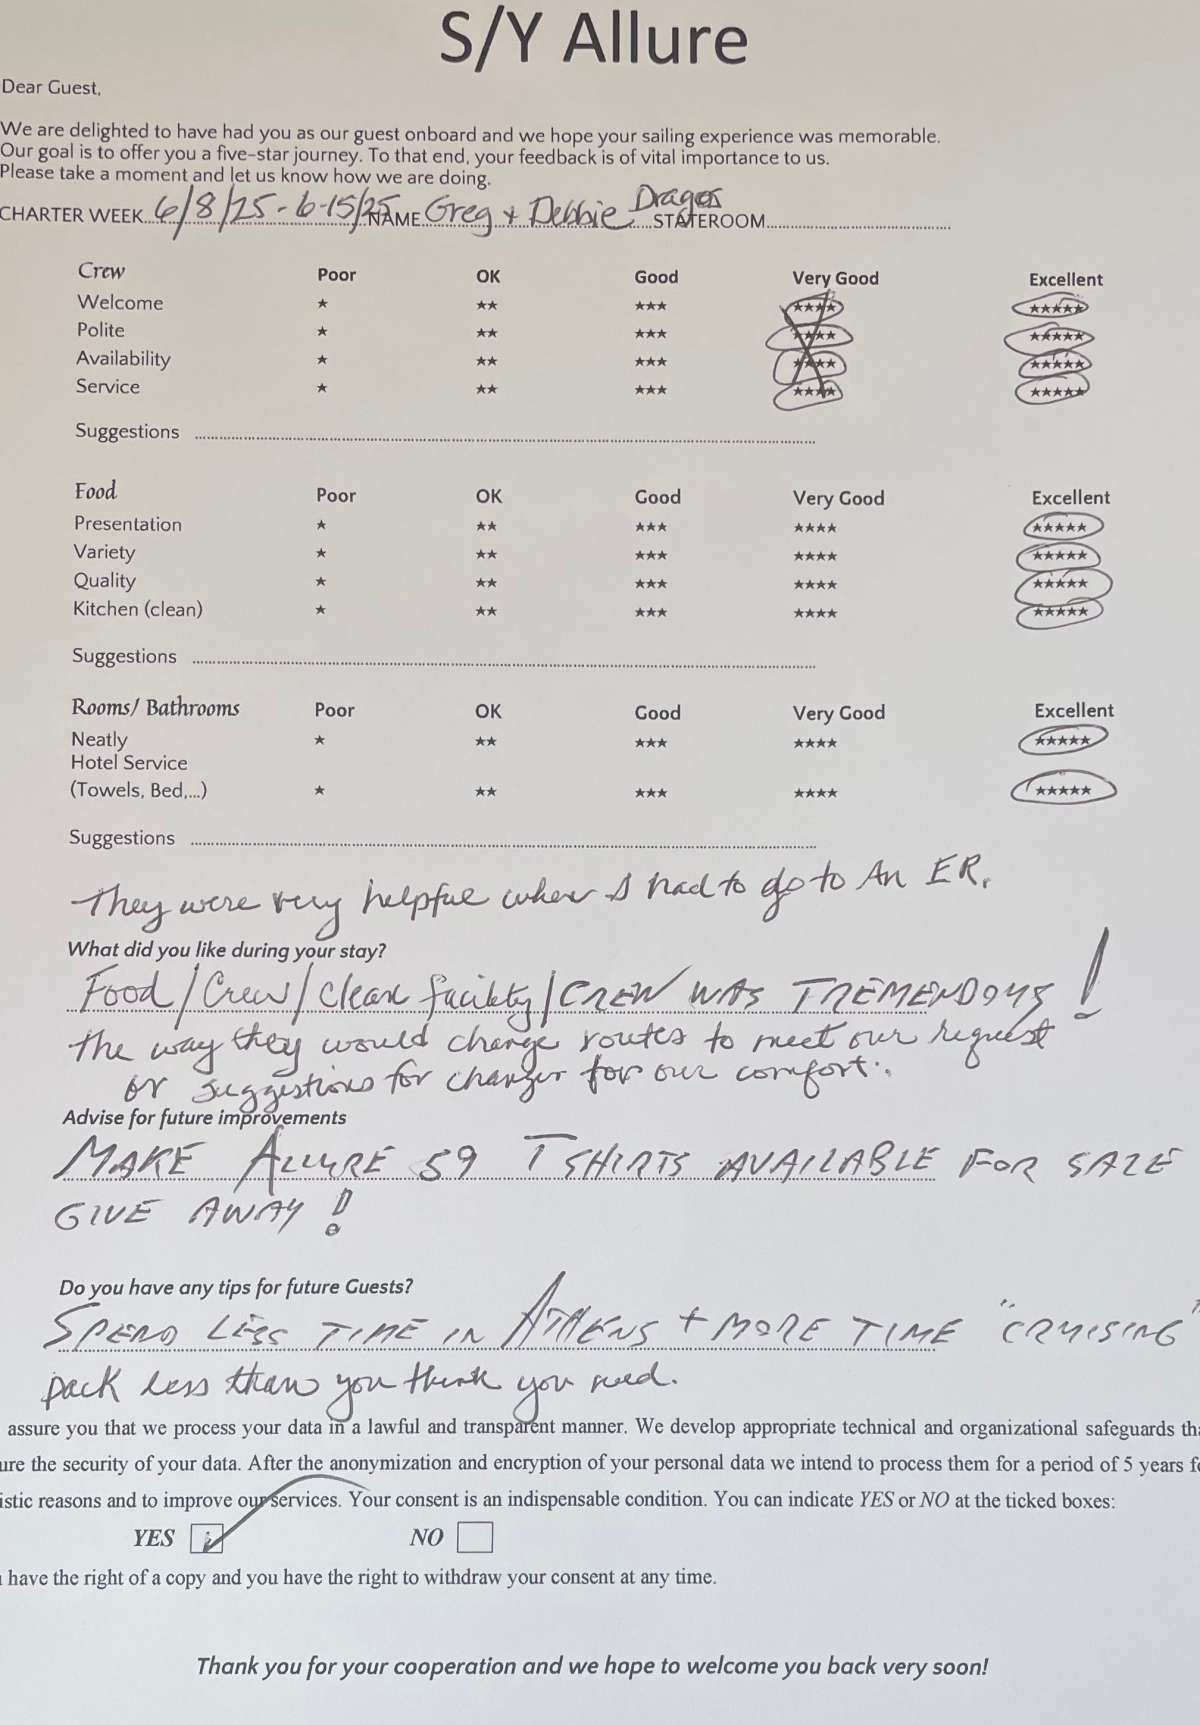 S/Y Allure
Dear Guest,
We are delighted to have had you as our guest onboard and we hope your sailing experience was memorable.
Our goal is to offer you a five-star journey. To that end, your feedback is of vital importance to us.
Please take a moment and let us know how we are doing.
CHARTER WEEK 6/8/25-6-15/25 NAME Greg + Debbie Dragos STATEROOM
Crew Poor OK Good Very Good Excellent
Welcome ★ ★★ ★★★ ★★★★ ★★★★★
Polite ★ ★★ ★★★ ★★★★ ★★★★★
Availability ★ ★★ ★★★ ★★★★ ★★★★★
Service ★ ★★ ★★★ ★★★★ ★★★★★
Suggestions
Food Poor OK Good Very Good Excellent
Presentation ★ ★★ ★★★ ★★★★ ★★★★★
Variety ★ ★★ ★★★ ★★★★ ★★★★★
Quality ★ ★★ ★★★ ★★★★ ★★★★★
Kitchen (clean) ★ ★★ ★★★ ★★★★ ★★★★★
Suggestions
Rooms/ Bathrooms Poor OK Good Very Good Excellent
Neatly ★ ★★ ★★★ ★★★★ ★★★★★
Hotel Service
(Towels, Bed,...) ★ ★★ ★★★ ★★★★ ★★★★★
Suggestions
They were very helpful when I had to go to An ER.
What did you like during your stay?
Food/Crew/clean facility/CREW WAS TREMENDOUS!
The way they would change routes to meet our request
or suggestions for changes for our comfort.
Advise for future improvements
MAKE ALLURE 59 T SHIRTS AVAILABLE FOR SALE
GIVE AWAY!
Do you have any tips for future Guests?
SPEND LESS TIME IN ATHENS + MORE TIME "CRUISING"
pack less than you think you need.
assure you that we process your data in a lawful and transparent manner. We develop appropriate technical and organizational safeguards tha
ure the security of your data. After the anonymization and encryption of your personal data we intend to process them for a period of 5 years fo
istic reasons and to improve our services. Your consent is an indispensable condition. You can indicate YES or NO at the ticked boxes:
YES NO
have the right of a copy and you have the right to withdraw your consent at any time.
Thank you for your cooperation and we hope to welcome you back very soon!